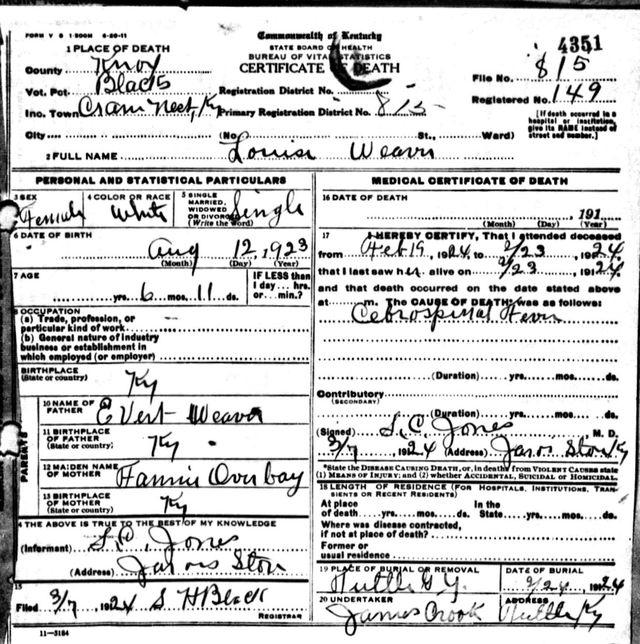 FORM V S 1-300M 6-20-11
Commonwealth of Kentucky
STATE BOARD OF HEALTH
BUREAU OF VITAL STATISTICS
CERTIFICATE OF DEATH
4351
1 PLACE OF DEATH
County Knox
Vot. Pct. Black
Inc. Town
City
Registration District No.
Primary Registration District No. 815
File No. 815
Registered No. 149
(No St., Ward)
[If death occurred in a hospital or institution, give its NAME instead of street and number.]
2 FULL NAME Louise Weaver
PERSONAL AND STATISTICAL PARTICULARS
3 SEX Female
4 COLOR OR RACE White
5 SINGLE MARRIED, WIDOWED OR DIVORCED (Write the word) Single
6 DATE OF BIRTH
Aug 12, 1923
(Month) (Day) (Year)
7 AGE
yrs. 6 mos. 11 ds.
IF LESS than 1 day ... hrs. or ... min.?
8 OCCUPATION
(a) Trade, profession, or particular kind of work
(b) General nature of industry business or establishment in which employed (or employer)
BIRTHPLACE
(State or country) Ky
PARENTS
10 NAME OF FATHER Evert Weaver
11 BIRTHPLACE OF FATHER (State or country) Ky
12 MAIDEN NAME OF MOTHER Fannie Overbay
13 BIRTHPLACE OF MOTHER (State or country) Ky
14 THE ABOVE IS TRUE TO THE BEST OF MY KNOWLEDGE
(Informant) S.C. Jones
(Address) Jarvis Store
15
Filed 3/7, 1924 S H Black
REGISTRAR
11-3184
MEDICAL CERTIFICATE OF DEATH
16 DATE OF DEATH
191
(Month) (Day) (Year)
17 I HEREBY CERTIFY, That I attended deceased
from Feb 19, 1924 to 2/23, 1924
that I last saw her alive on 2/23, 1924
and that death occurred on the date stated above
at m. The CAUSE OF DEATH was as follows:
Cebrospinal Fever
(Duration) yrs. mos. ds.
Contributory
(SECONDARY)
(Duration) yrs. mos. ds.
(Signed) S.C. Jones M. D.
3/7, 1924 (Address) Jarvis Store Ky
*State the DISEASE CAUSING DEATH, or, in deaths from VIOLENT CAUSES state (1) MEANS OF INJURY; and (2) whether ACCIDENTAL, SUICIDAL or HOMICIDAL.
18 LENGTH OF RESIDENCE (FOR HOSPITALS, INSTITUTIONS, TRANSIENTS OR RECENT RESIDENTS)
At place of death yrs. mos. ds. In the State yrs. mos. ds.
Where was disease contracted, if not at place of death?
Former or usual residence
19 PLACE OF BURIAL OR REMOVAL
DATE OF BURIAL
2/24, 1924
20 UNDERTAKER
James Crook
ADDRESS
Ky